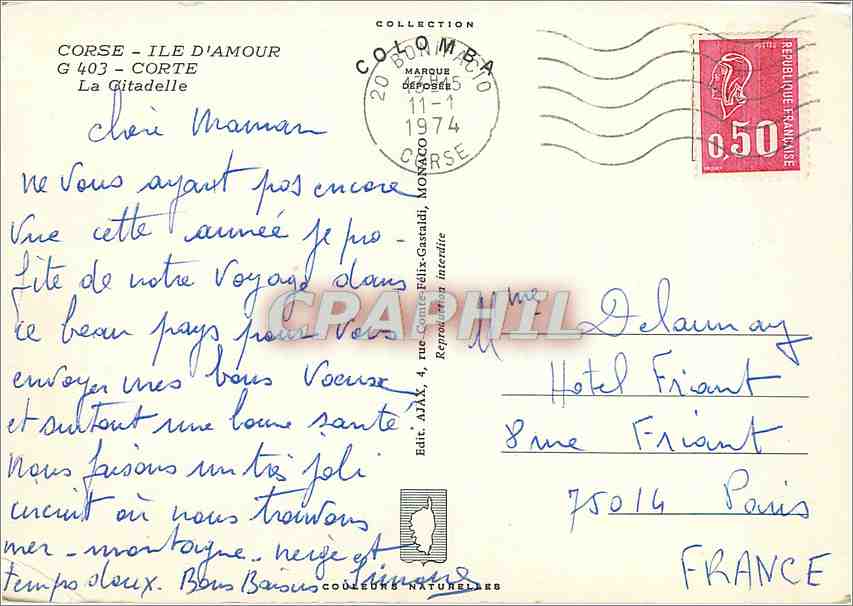 COLLECTION
COLOMBA
MARQUE
DÉPOSÉE
CORSE - ILE D'AMOUR
G 403 - CORTE
La Citadelle
20 BONIFACIO
13H45
11-1
1974
CORSE
POSTES
REPUBLIQUE FRANÇAISE
0,50
chère Maman
ne vous ayant pas encore
vue cette année je pro-
fite de notre voyage dans
ce beau pays pour vous
envoyer mes bons voeux
et surtout une bonne santé.
Nous faisons un très joli
circuit où nous trouvons
mer - montagne - neige et
temps doux. Bons Baisers Simone
Edit. AJAX, 4, rue Comte-Félix-Gastaldi, MONACO
Reproduction interdite
CPARHIL
Mme Delaunay
Hotel Friant
8 rue Friant
75014 Paris
FRANCE
COULEURS NATURELLES